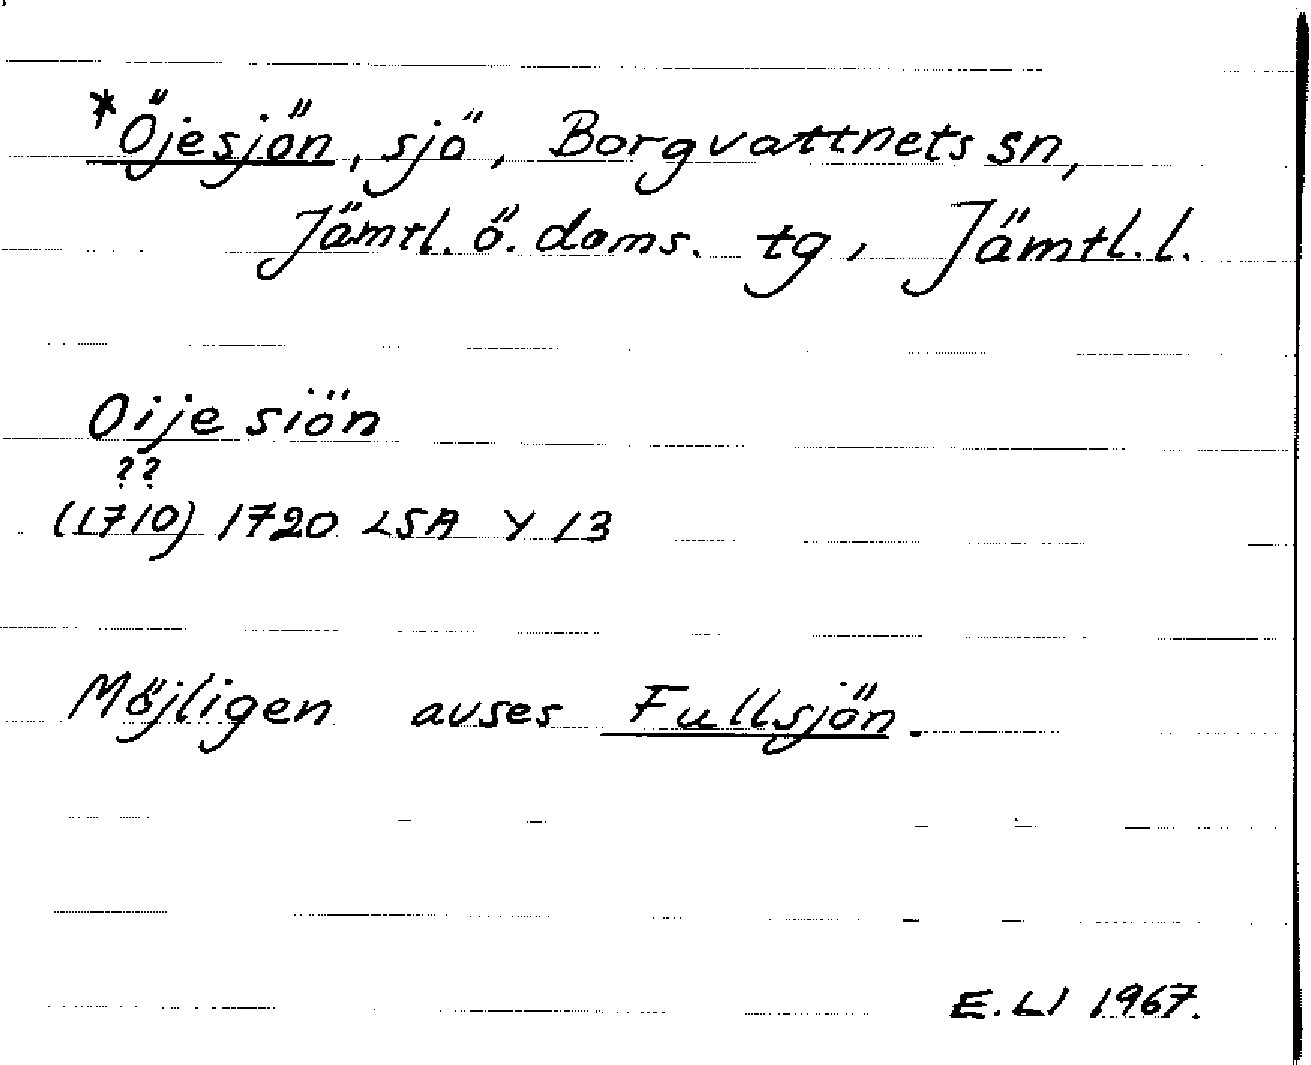 *Öjesjön, sjö, Borgvattnets sn,
Jämtl. ö. doms. tg, Jämtl. l.
Oije siön
??
(1710) 1720 LSA Y 13
Möjligen avses Fullsjön.
E. LJ 1967.